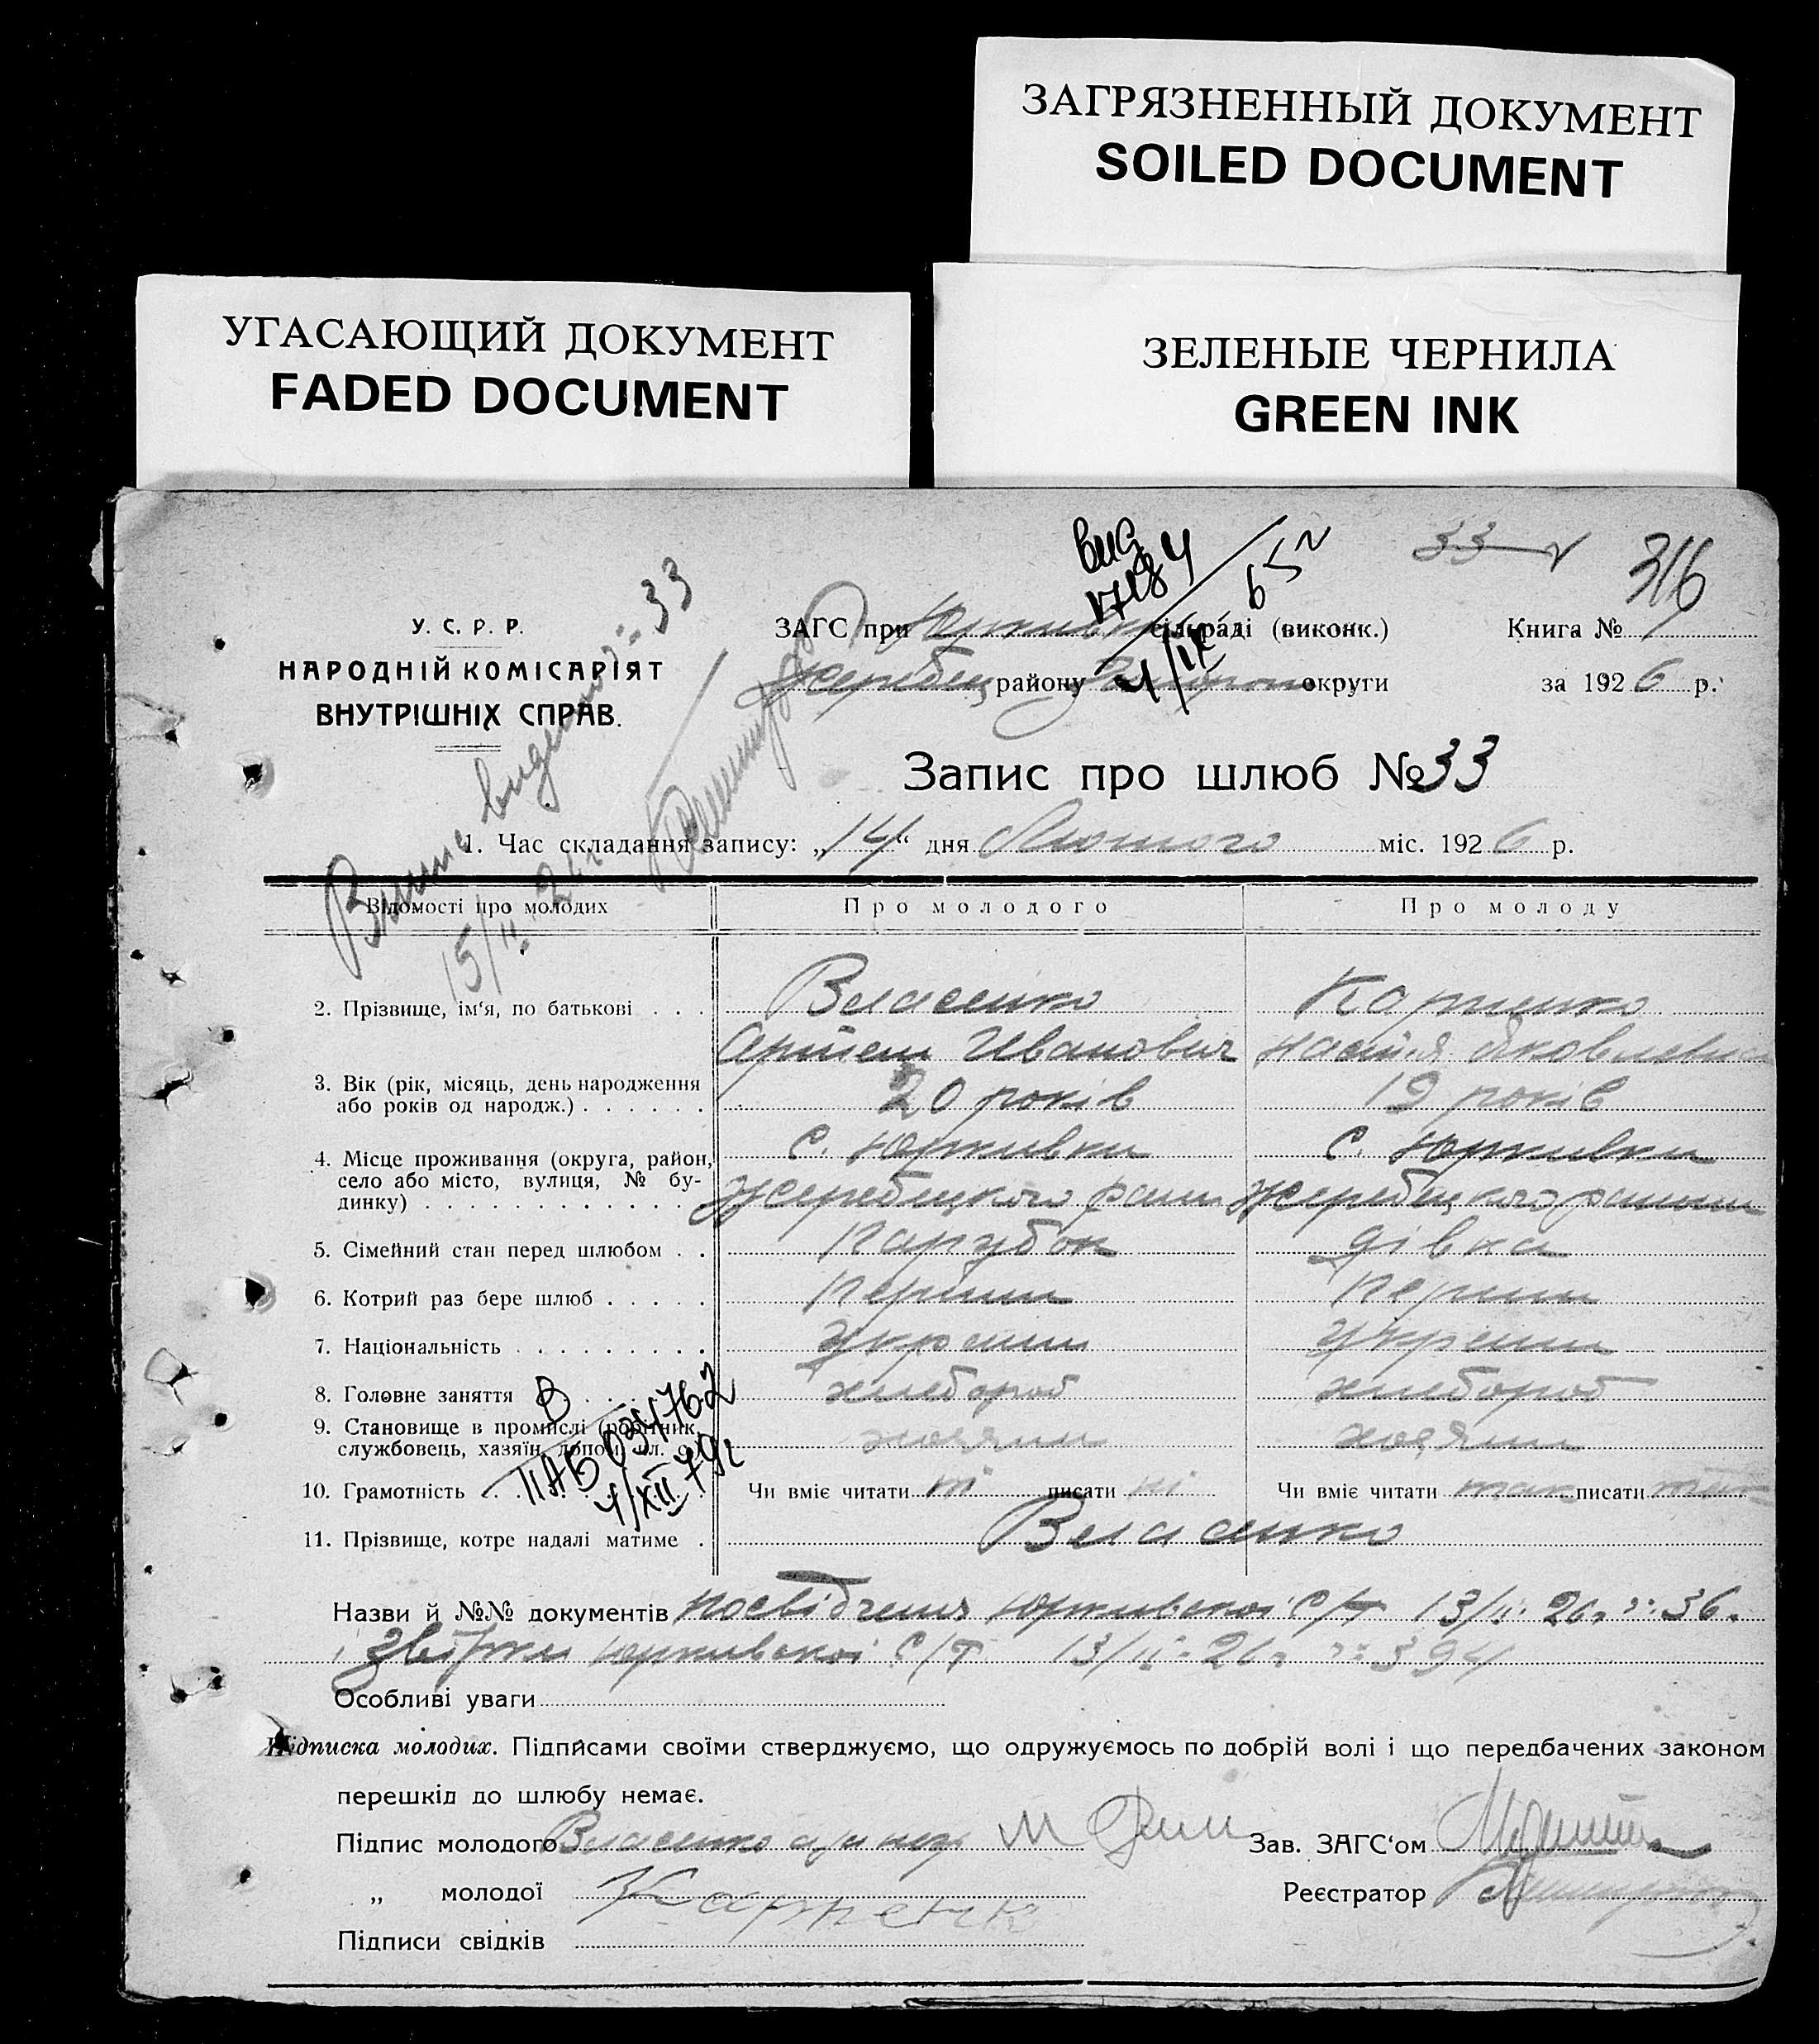 ЗАГРЯЗНЕННЫЙ ДОКУМЕНТ
SOILED DOCUMENT
УГАСАЮЩИЙ ДОКУМЕНТ
FADED DOCUMENT
ЗЕЛЕНЫЕ ЧЕРНИЛА
GREEN INK
33
316
вид
У. С. Р. Р.
НАРОДНІЙ КОМІСАРІЯТ
ВНУТРІШНІХ СПРАВ.
ЗАГС при сільраді (виконк.) Книга №
Жеребец району округи за 1926 р.
33
Запис про шлюб № 33
1. Час складання запису: „14“ дня Лютого міс. 1926 р.
Відомості про молодих Про молодого Про молоду
2. Прізвище, ім'я, по батькові . . . Власенко Карпенко
Артем Иванович Настя Яковлевна
3. Вік (рік, місяць, день народження
або років од народж.) . . . . . . 20 років 19 років
4. Місце проживання (округа, район, с. Юркивки с. Юркивки
село або місто, вулиця, № бу-
динку) . . . . . . . . . . . . Жеребецкого Жеребецкого
5. Сімейний стан перед шлюбом . . Парубок дівка
6. Котрий раз бере шлюб . . . . . перший перший
7. Національність . . . . . . . . .
8. Головне заняття хлебороб хлебороб
9. Становище в промислі (робітник,
службовець, хазяїн, допом. чл. с.) хозяин хозяин
10. Грамотність Чи вміє читати ні писати ні Чи вміє читати так писати так
ІІАБ 034762
4/XII 79г
11. Прізвище, котре надалі матиме . Власенко
Назви й №№ документів посвідчення Юркивскої С/Р 13/II 26. 36.
Юркивскої С/Р 13/II 26. 394
Особливі уваги
Підписка молодих. Підписами своїми стверджуємо, що одружуємось по добрій волі і що передбачених законом
перешкід до шлюбу немає.
Підпис молодого Власенко Зав. ЗАГС'ом
„ молодої Карпенко Реєстратор
Підписи свідків